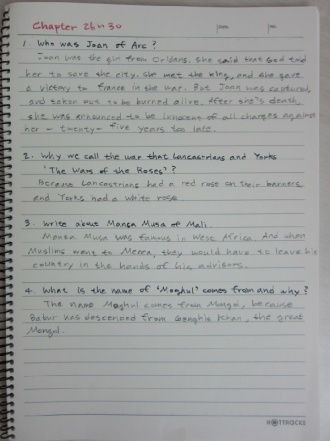 Chapter 26~30
1. Who was Joan of Arc?
Joan was the girl from Orléans. She said that God told
her to save the city. She met the king, and she gave
a victory to France in the war. But Joan was captured,
and taken out to be burned alive. After she's death,
she was announced to be innocent of all charges against
her - twenty-five years too late.
2. Why we call the war that Lancastrians and Yorks
'The Wars of the Roses'?
Because Lancastrians had a red rose on their banners
and Yorks had a white rose.
3. Write about Mansa Musa of Mali.
Mansa Musa was famous in West Africa. And when
Muslims went to Mecca, they would have to leave his
country in the hands of his advisors.
4. What is the name of 'Moghul' comes from and why?
The name Moghul comes from Mongol, because
Babur was descended from Genghis Khan, the great
Mongol.
HOTTRACKS